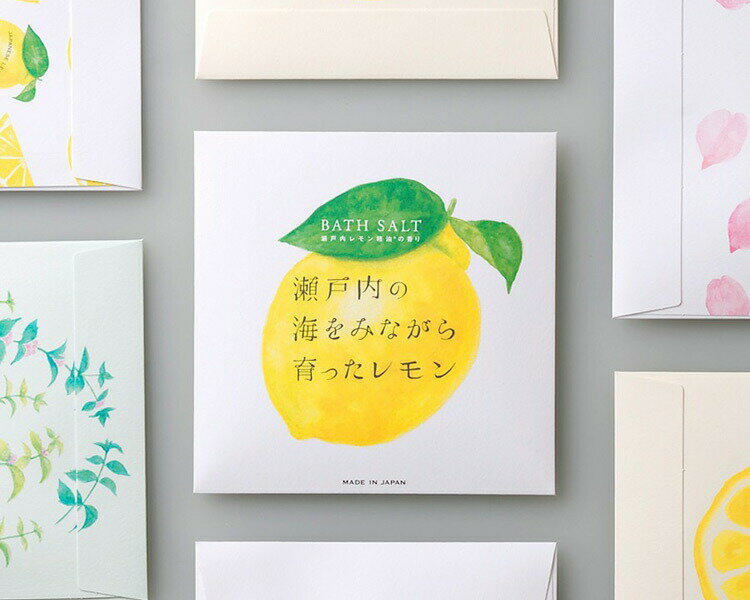 BATH SALT
瀬戸内レモン精油*の香り
瀬戸内の
海をみながら
育ったレモン
MADE IN JAPAN